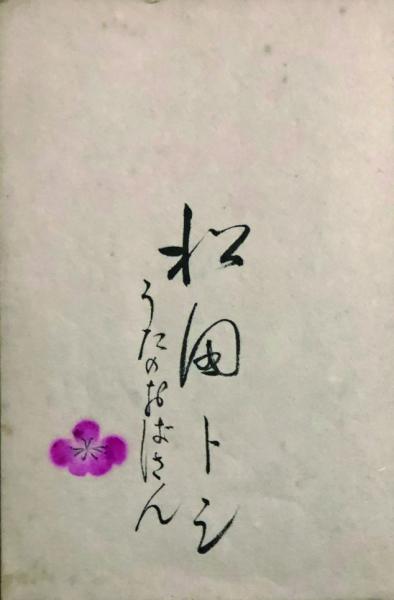 松田トシ
うたのおばさん